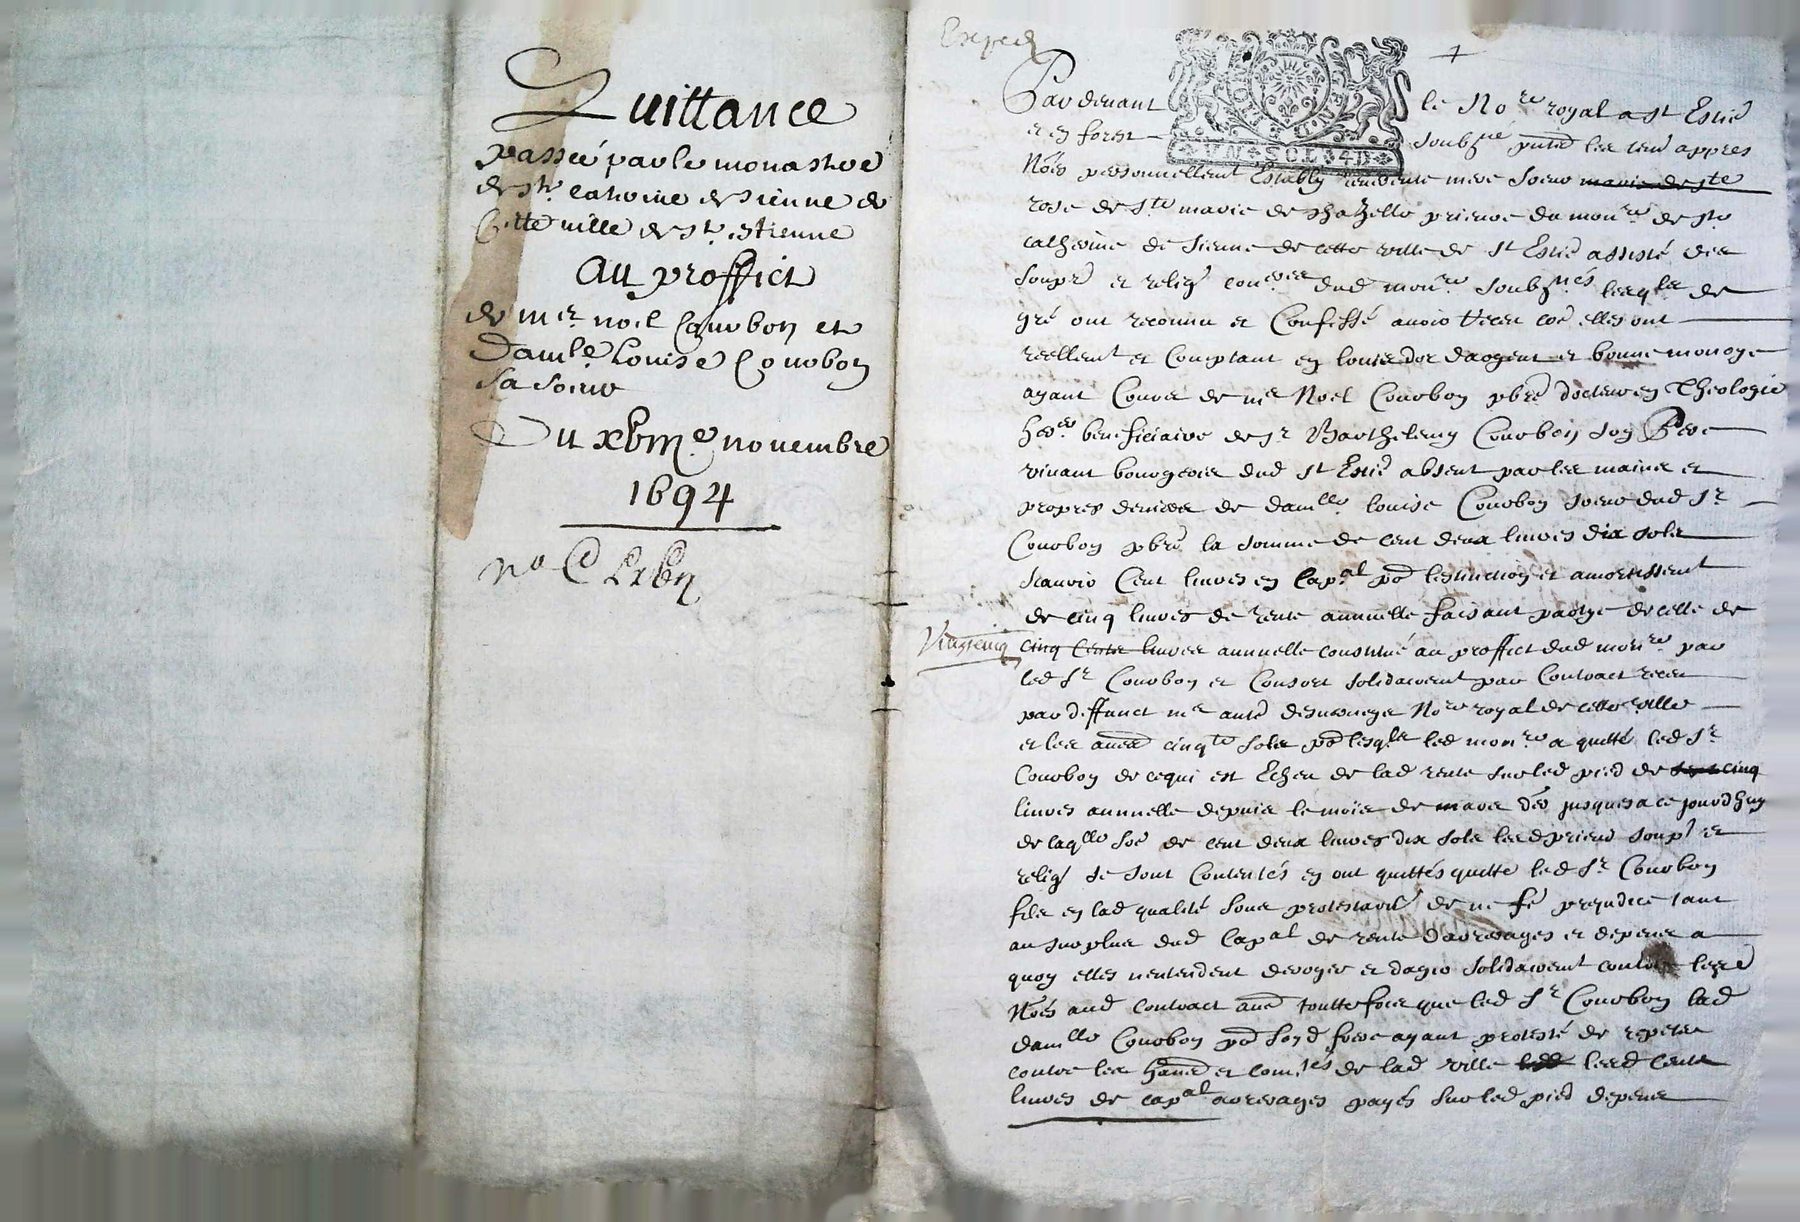 Quittance
passée par le monastere
de ste catherine de sienne de
Cette ville de st estienne
au proffict
de mre noel Courbon et
Damlle Louise Courbon
sa soeur
Du xbme novembre
1694
no C
Exped
Pardevant le Nore royal a st Estie
et en forest soubzne
Nōes personnellemt Establÿ reverente mere soeur marie de ste
rose de ste marie de chazelle prieure du monre de ste
catherine de sienne de cette ville de st Estie assisté des
soupre et relig conres dud monre soubznés lesqles de
gré ont reconnu et Confessé avoir receu coe elles ont
reellemt et Comptant en louis dor dargent et bonne monoye
ayant Cours de mre Noel Courbon pbre docteur en Theologie
herer beneficiaire de sr Barthelemy Courbon son Pere
vivant bourgeois dud st Estie absent par les mains et
propres deniers de damlle louise Courbon soeur dud sr
Courbon pbre la somme de cent deux livres dix sols
scavoir Cent livres en capal pr lextinction et amortissemt
de cinq livres de rente annuelle faisant partye de celle de
vingtcinq cinq cents livres annuelle constitué au proffict dud monre par
led sr Courbon et Consort solidairemt par Contract receu
par deffunct me ante desverneys Nore royal de cette ville
et les autres cinqte sols pr lesqls led monre a quitté led sr
Courbon de cequi est Echeu de lad rente sur led pied de sept cinq
livres annuelle depuis le mois de mars der jusques a ce jourdhuy
de laqlle soe de cent deux livres dix sols lesd prieure soupr et
relig se sont Contentés en ont quittés quitte led sr Courbon
fils en lad qualité sous protestaon de ne fe prejudice tant
au surplus dud capal de rente darrerages et depens a
quoy elles nentendent deroger et dagir solidairemt contre les
Nōés aud contract avec touttefois que led sr Courbon lad
damlle Courbon pr sond frere ayant protesté de repeter
contre les et de lad ville lesd cents
livres de capal arrerages payés sur led pied depens